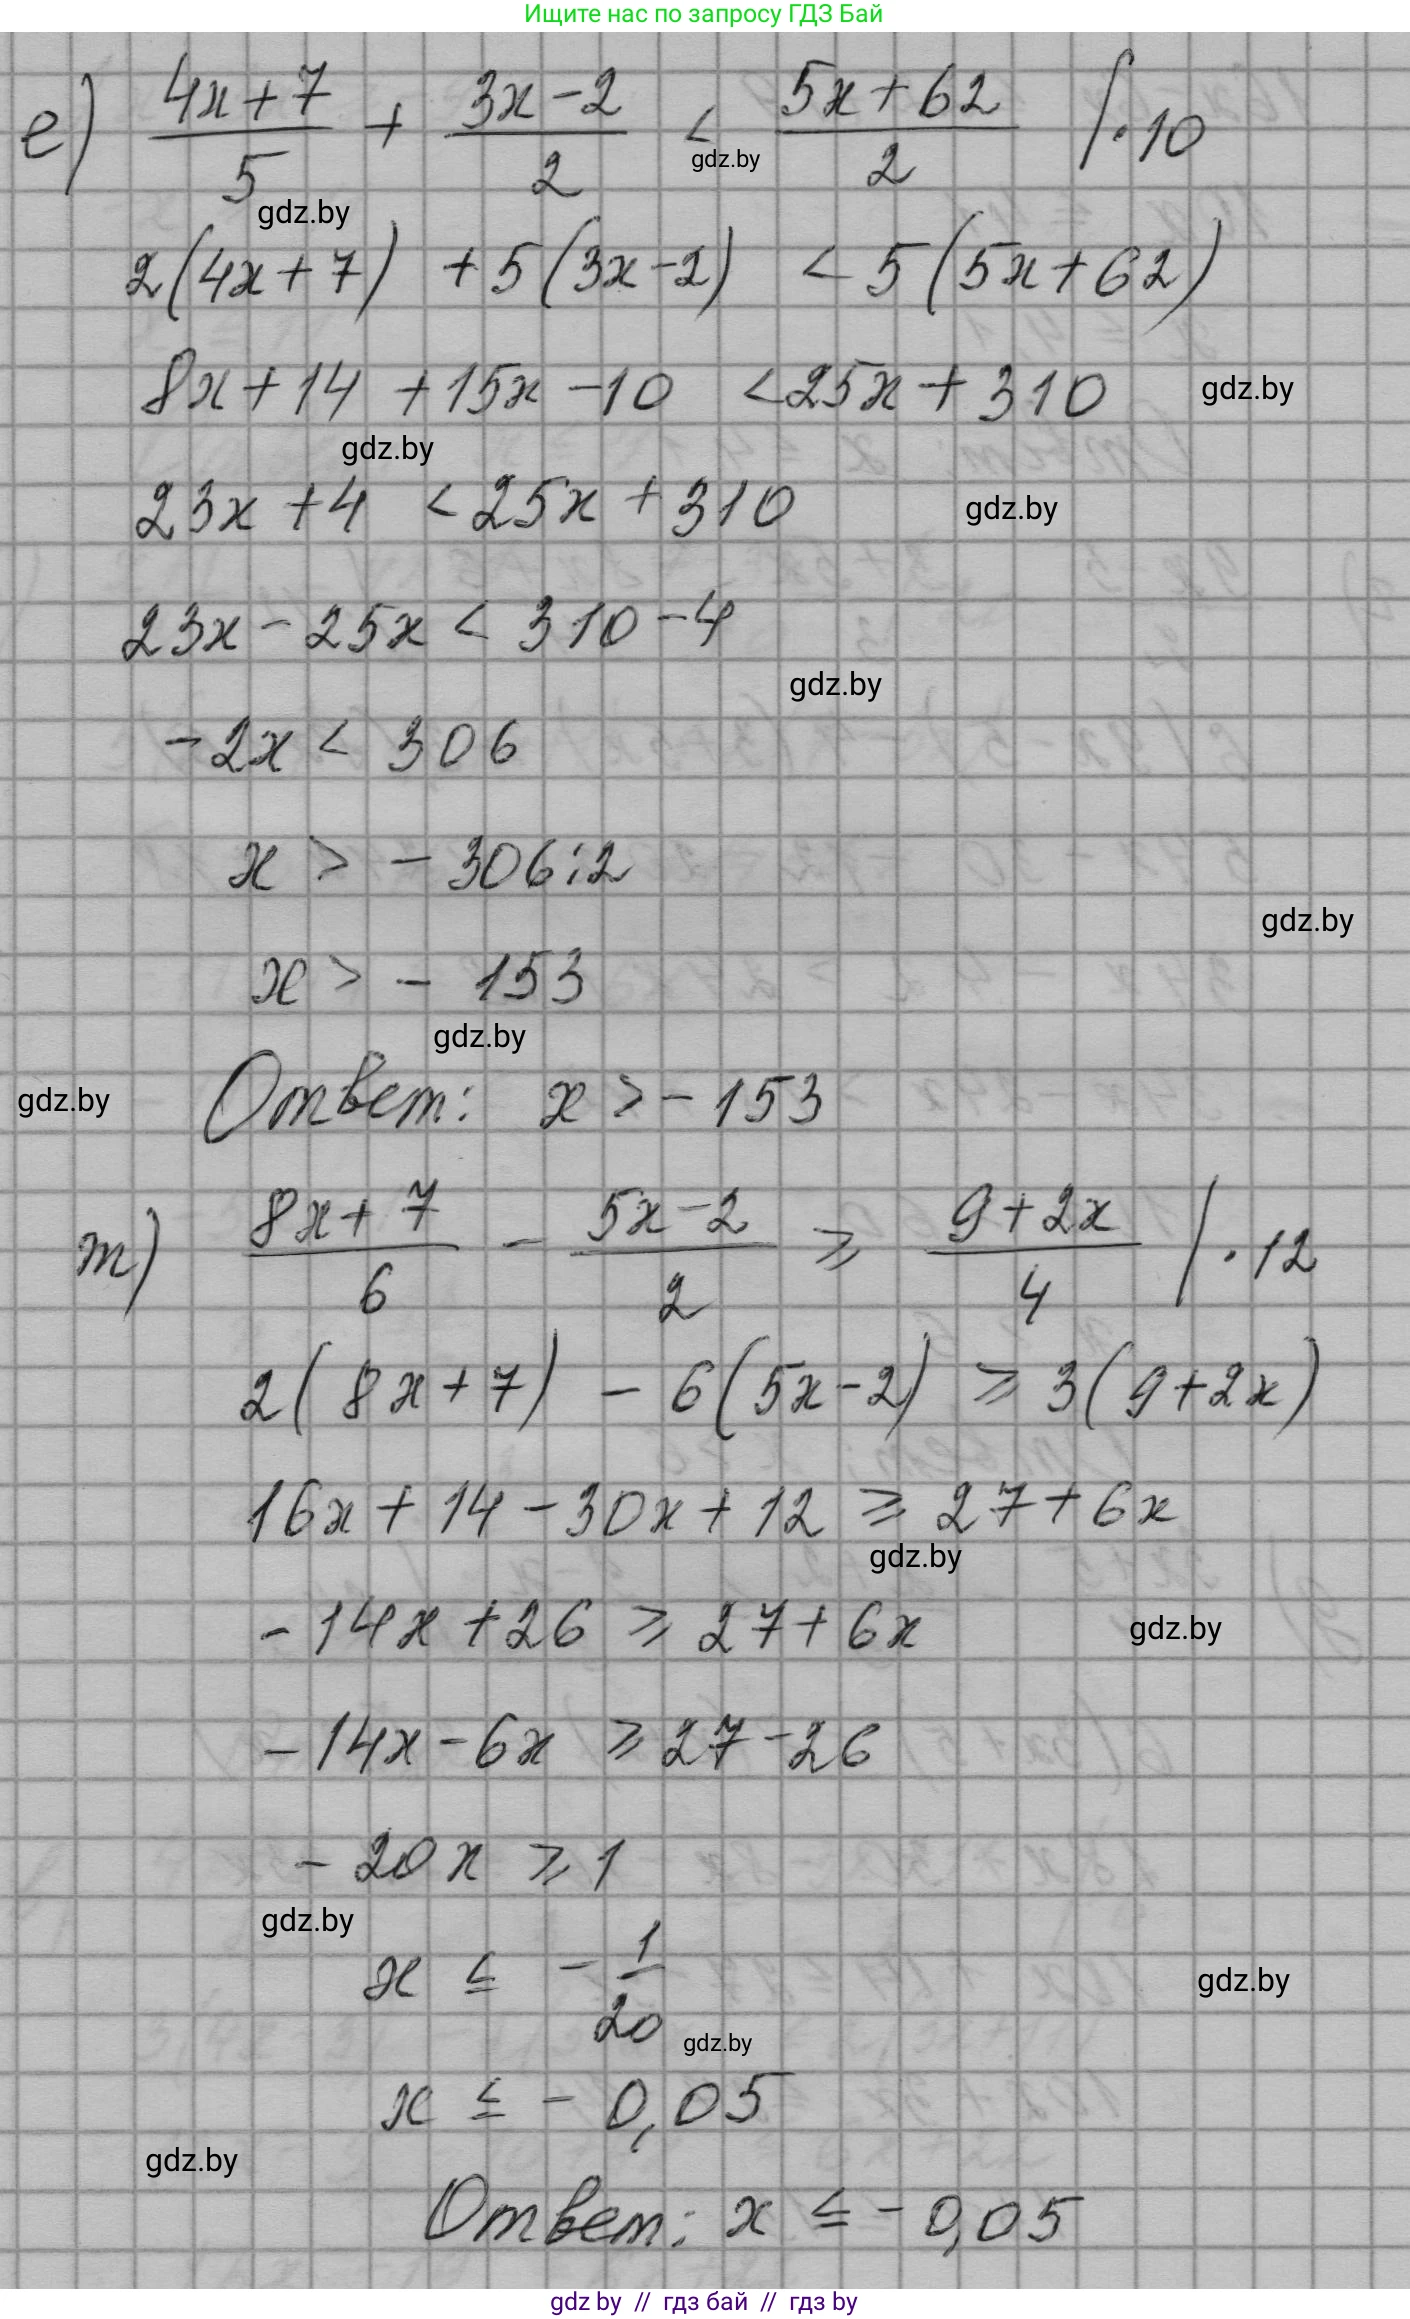 Ищите нас по запросу ГДЗ Бай
е) (4x+7)/5 + (3x-2)/2 < (5x+62)/2 / ·10
gdz.by
gdz.by
2(4x+7) +5(3x-2) <5(5x+62)
8x+14 +15x-10 <25x+310
gdz.by
gdz.by
23x+4 <25x+310
gdz.by
23x-25x< 310-4
gdz.by
-2x< 306
x > -306:2
gdz.by
x> - 153
gdz.by
gdz.by
Ответ: x>-153
т) (8x+7)/6 - (5x-2)/2 ⩾ (9+2x)/4 / ·12
2(8x+7) - 6(5x-2) ⩾3(9+2x)
16x+14-30x+12 ⩾ 27+6x
gdz.by
-14x+26 ⩾ 27+6x
gdz.by
-14x-6x ⩾27-26
-20x ⩾1
gdz.by
x ≤ -1/20
gdz.by
gdz.by
x ≤ -0,05
gdz.by
Ответ: x ≤ -0,05
gdz by // гдз бай // гдз by